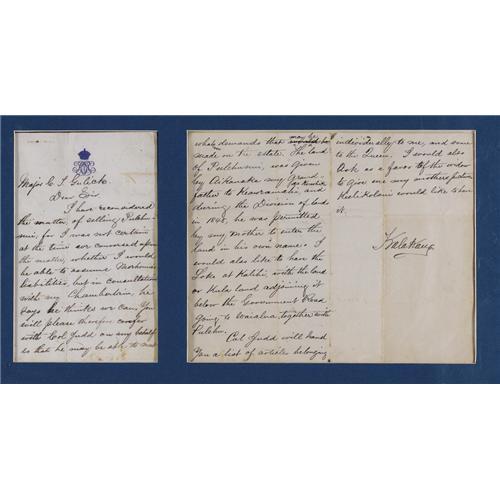 Major C. T. Gulick.
Dear Sir
I have reconsidered
the matter of selling
for I was not certain
at the time we conversed upon
the matter, whether I would
be able to assume
liabilities, but in consultation
with my Chamberlain, he
says he thinks we can. You
will please therefore confer
with Col Judd on my behalf
so that he may be able to
what demands that may be
made on the estate. The land
of was given
by Aikanaka my Grand
father to and
during the Division of land
in 1848, he was permitted
by my Mother to enter the
land in his own name. I
would also like to have the
Loko at Kalihi with the land
or Kula land adjoining it
below the Government Road
going to Waialua together with
Col Judd will hand
You a list of articles belonging
individually to me, and some
to the Queen. I would also
Ask as a favor of the widow
to Give me my mothers picture
Keelikolani would like to have
it.
Kalakaua